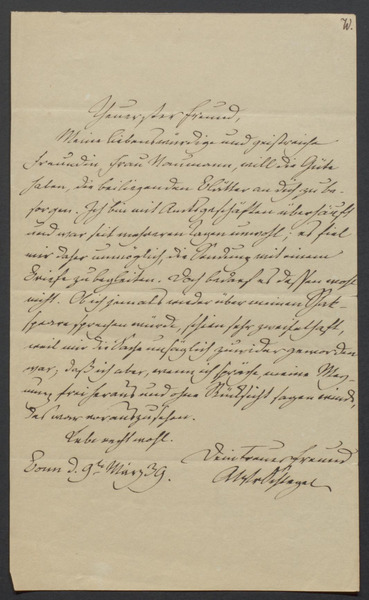 W.
Theuerster Freund,
Meine liebenswürdige und geistreiche
Freundin, Frau Naumann, will die Güte
haben, die beiliegenden Blätter an dich zu be-
sorgen. Ich bin mit Amtsgeschäften überhäuft
und war seit mehreren Tagen unwohl; es fiel
mir daher unmöglich, die Sendung mit einem
Briefe zu begleiten. Doch bedarf es dessen wohl
nicht. Ob ich jemals wieder über meinen Shak-
speare sprechen würde, schien sehr zweifelhaft,
weil mir die Sache unsäglich zuwider geworden
war; daß ich aber, wenn ich spräche, meine Mey-
nung frei heraus und ohne Rücksicht sagen würde,
das war vorauszusehen.
Lebe recht wohl.
Dein treuer Freund
Bonn d. 9ten März 39.
AWvSchlegel